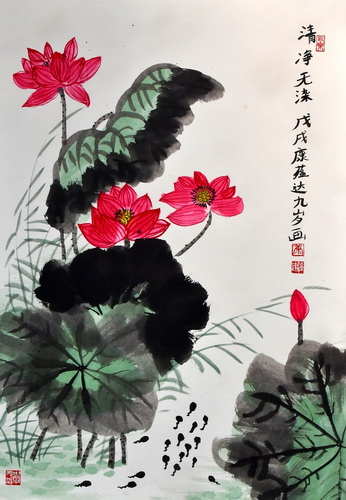 清净无染 戊戌康蕴达九岁画